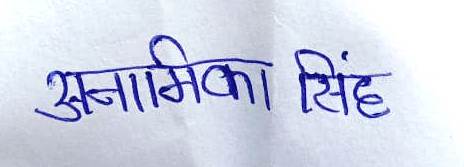 अनामिका सिंह